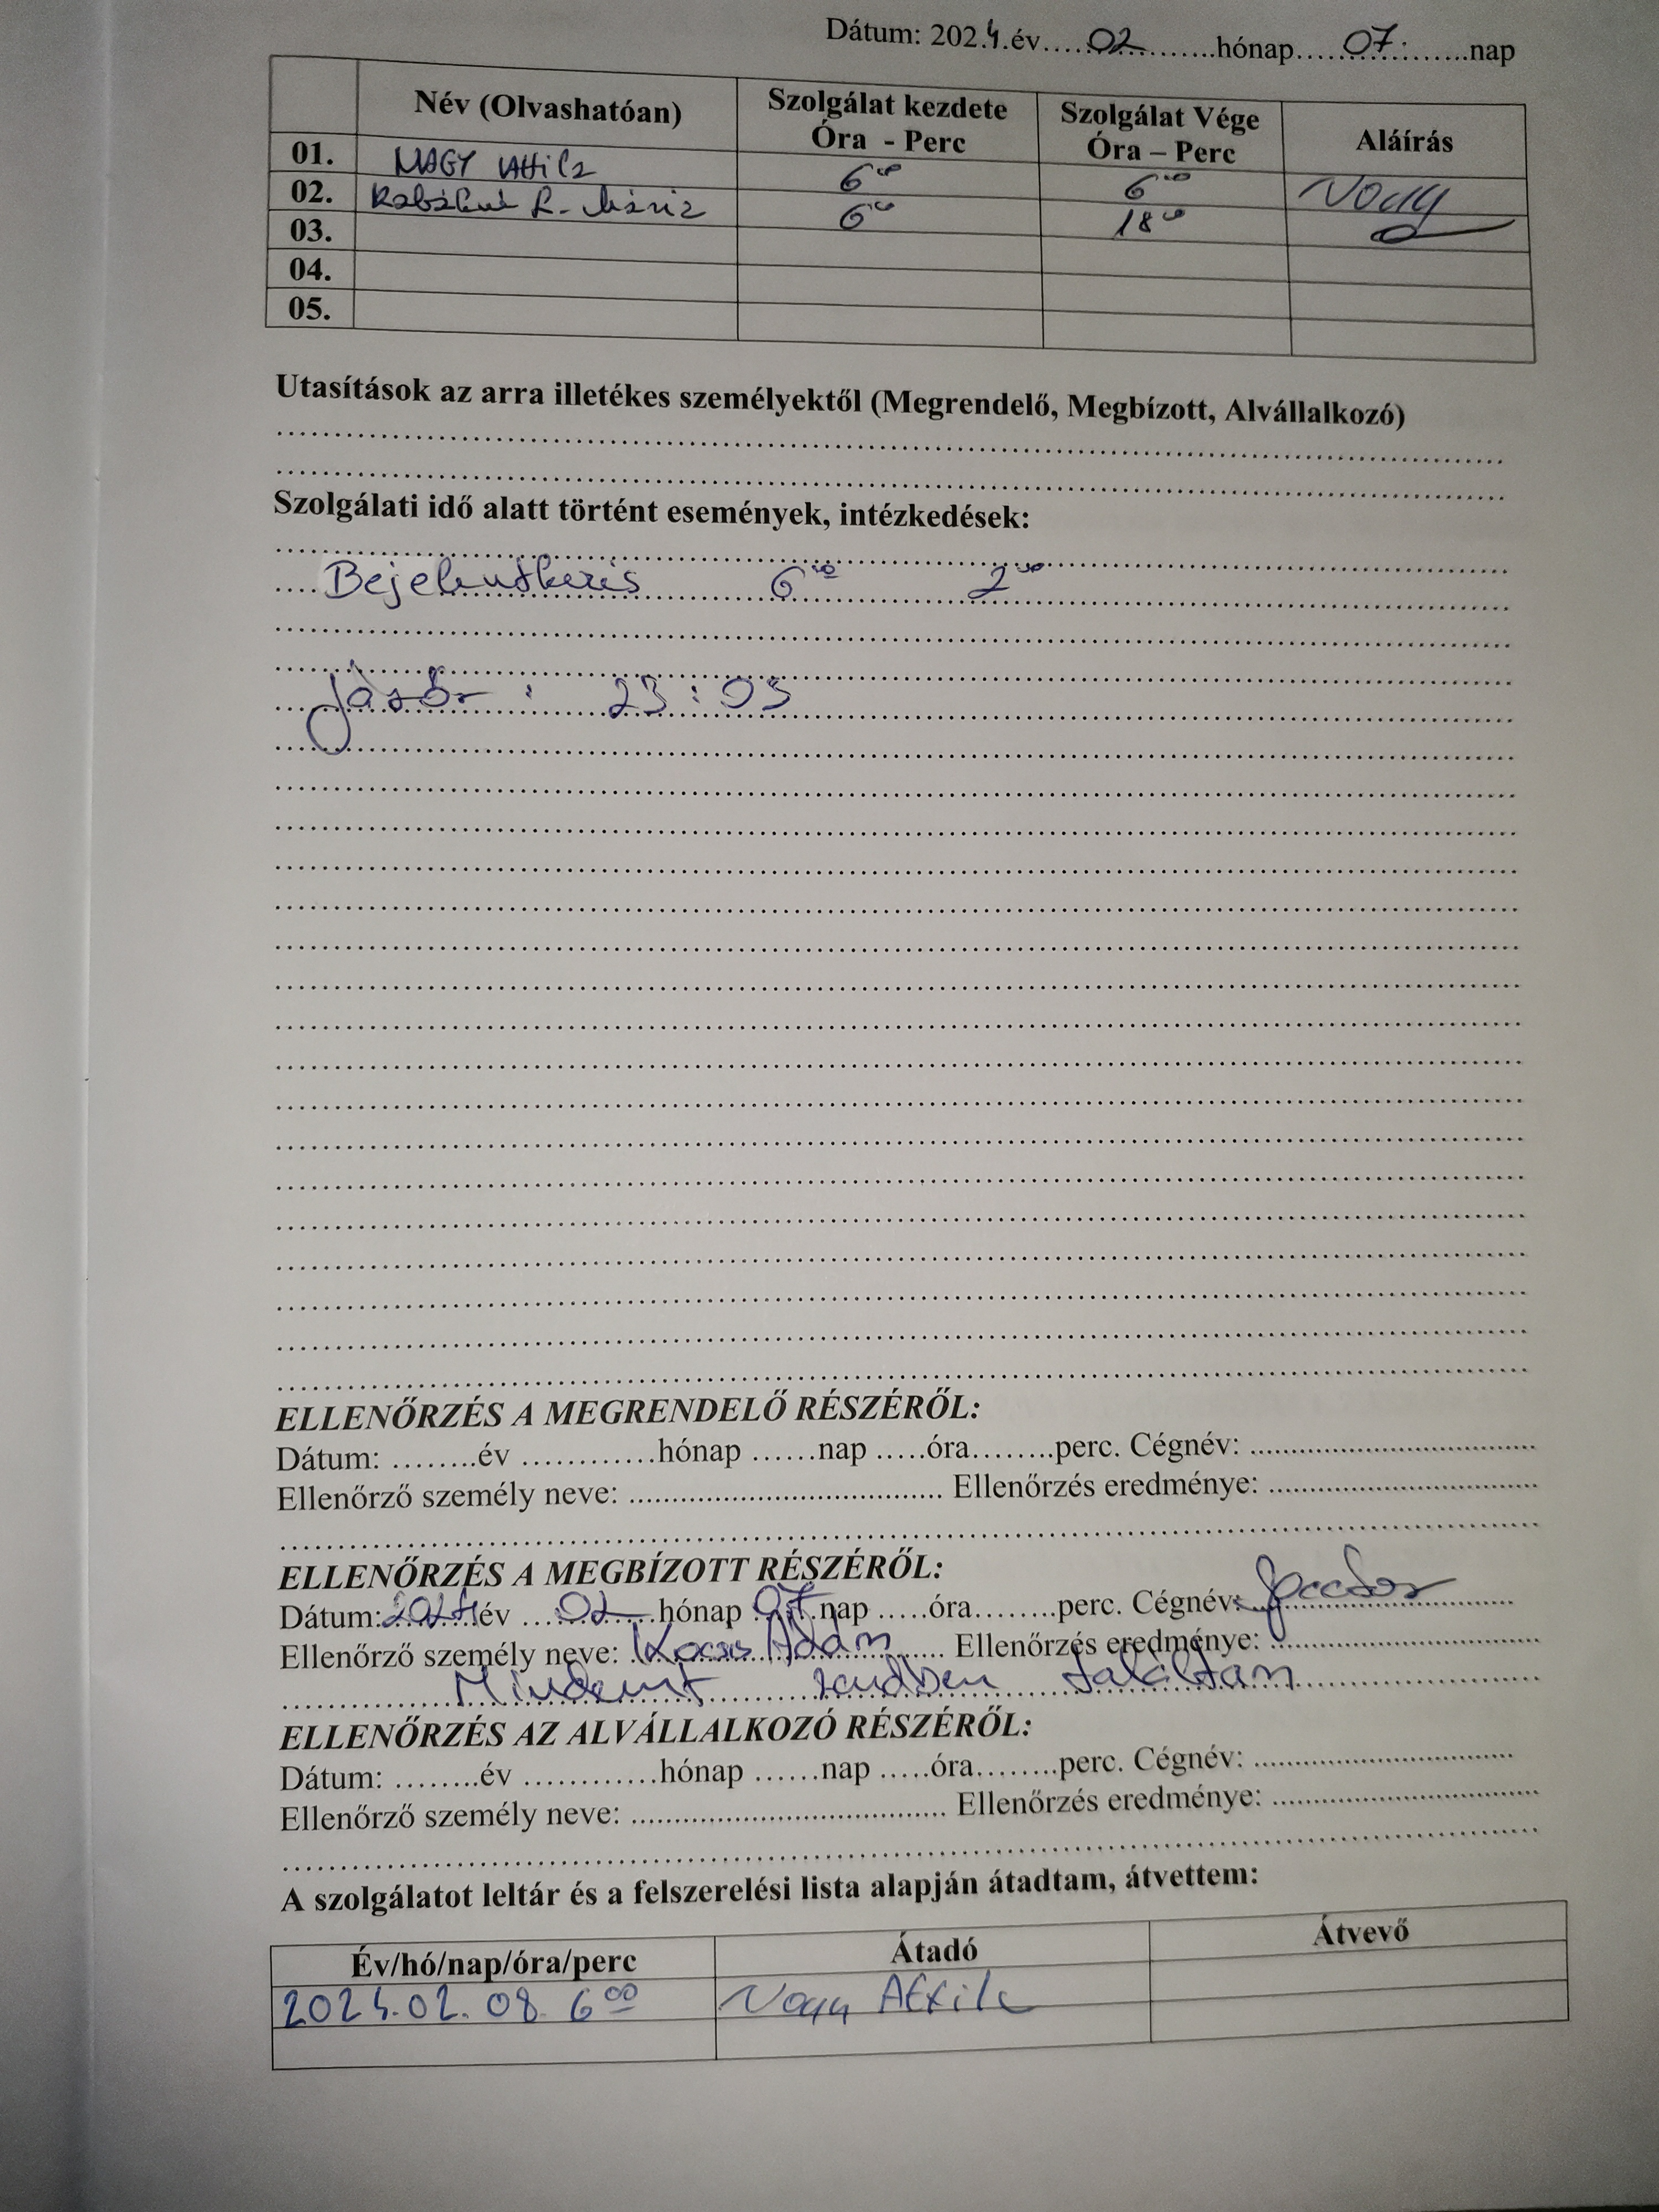 Dátum: 2024.év.....02.............hónap......07..........nap
Név (Olvashatóan) Szolgálat kezdete Óra - Perc Szolgálat Vége Óra – Perc Aláírás
01. NAGY Attila 6⁰⁰ 6⁰⁰ Nagy
02. R. Mária 6⁰⁰ 18⁰⁰
03.
04.
05.
Utasítások az arra illetékes személyektől (Megrendelő, Megbízott, Alvállalkozó)
Szolgálati idő alatt történt események, intézkedések:
Bejelentkezés 6⁰⁰ 2⁰⁰
Járőr : 23:03
ELLENŐRZÉS A MEGRENDELŐ RÉSZÉRŐL:
Dátum: ........év ............hónap ......nap .....óra........perc. Cégnév: ..............................
Ellenőrző személy neve: ...................................... Ellenőrzés eredménye: ..............................
ELLENŐRZÉS A MEGBÍZOTT RÉSZÉRŐL:
Dátum: 2024 év ...02......hónap 07.nap .....óra........perc. Cégnév:
Ellenőrző személy neve: Kocsis Ádám Ellenőrzés eredménye: ..............................
Mindent rendben találtam
ELLENŐRZÉS AZ ALVÁLLALKOZÓ RÉSZÉRŐL:
Dátum: ........év ............hónap ......nap .....óra........perc. Cégnév: ..............................
Ellenőrző személy neve: ...................................... Ellenőrzés eredménye: ..............................
A szolgálatot leltár és a felszerelési lista alapján átadtam, átvettem:
Év/hó/nap/óra/perc Átadó Átvevő
2024.02.08. 6⁰⁰ Nagy Attila